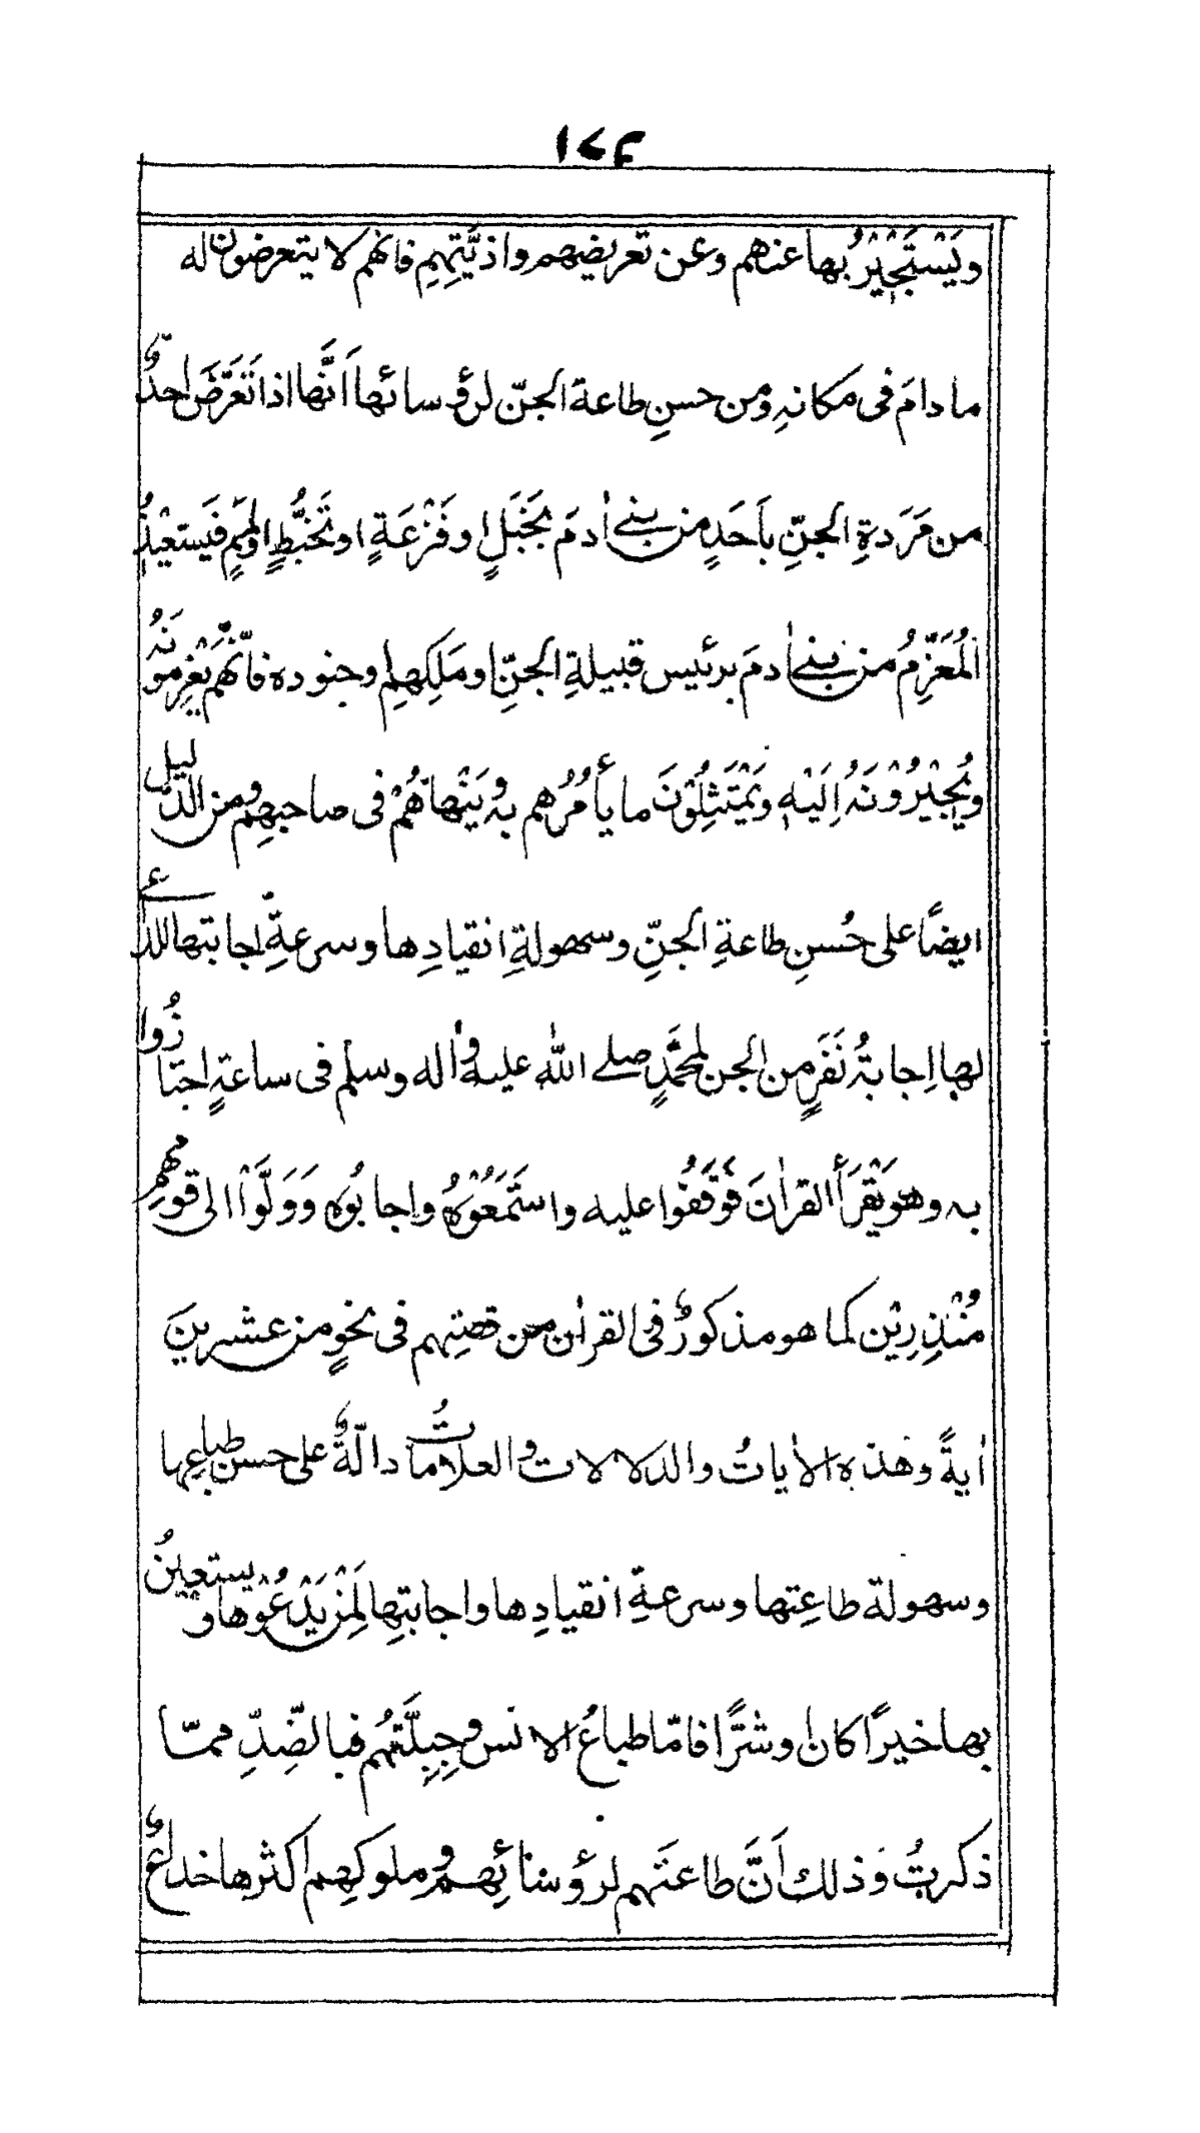 ١٧٤
ويَسْتَجِيْرُ بها عنهم وعن تعريضهم واذيّتِهِمِ فانهم لا يتعرضون له
ما دامَ فى مكانہٖ ومن حسنِ طاعة الجنّ لرؤسائها اَنَّها اذا تَعَرَّضَ احدٌ
من مَرَدةِ الجنّ باَحَدٍ من بنے اٰدمَ بخَبَلٍ او فَزْعَةٍ او تَخَبُّطٍ اولَمَمٍ فَيَستعيْذُ
المُعَزِّمُ من بنے اٰدمَ برئيس قبيلةِ الجنِّ او مَلِكِهِم وجنوده فانّهُم يَغْرِمونَهُ
ويُجِيْرُوْنَهُ اِلَيْهِ ويَمْتَثِلُوْنَ ما يأمُرُهم به ويَنْهاهُمْ فى صاحبهِم ومن الدليل
ايضًا على حُسنِ طاعةِ الجنِّ وسهولةِ انقيادِها وسرعةِ اجابتها للداعے
لها اِجابةُ نَفَرٍ من الجن لمحمَّدٍ صلے اللّٰه عليه واٰله وسلم فى ساعةٍ اجتازُوا
به وهو يَقْرَأُ القراٰنَ فَوَقَفُوا عليه واستَمَعُوْهُ واجابُوه وَوَلَّوْا الى قومهِم
مُنْذِرِيْن كما هو مذكورٌ فى القراٰن من قصتِهم فى نحوٍ من عشرينَ
اٰيةً وهٰذه الاٰياتُ والدلالات والعلاماتُ دالّةٌ على حسن طباعِها
وسهولة طاعتِها وسرعةِ انقيادِها واجابتِها لِمَنْ يَدْعُوْها ويستعينُ
بها خيرًا كان او شرًّا فامّا طباعُ الانس وجِبِلَّتُهُم فبالضِدِّ ممّا
ذكرتُ وذلك اَنَّ طاعتَهم لرؤسائِهم وملوكِهم اكثرها خداعٌ